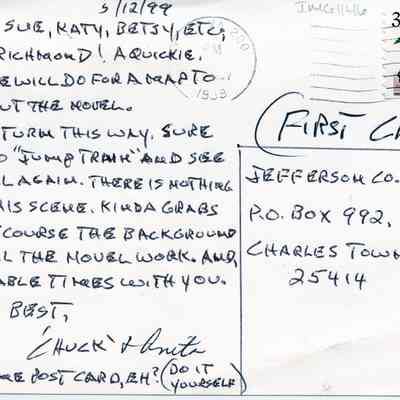 5/12/99
SUE, KATY, BETSY, ETC,
RICHMOND! A QUICKIE.
WILL DO FOR A MAP TO
THE NOVEL.
TURN THIS WAY. SURE
"JUMP TRAIN" AND SEE
AGAIN. THERE IS NOTHING
SCENE. KINDA GRABS
COURSE THE BACKGROUND
THE NOVEL WORK. AND,
TIMES WITH YOU.
BEST,
'CHUCK' & Anita
POST CARD, EH? (DO IT YOURSELF)
PM
1999
(FIRST
JEFFERSON CO.
P.O. BOX 992,
CHARLES TOWN
25414